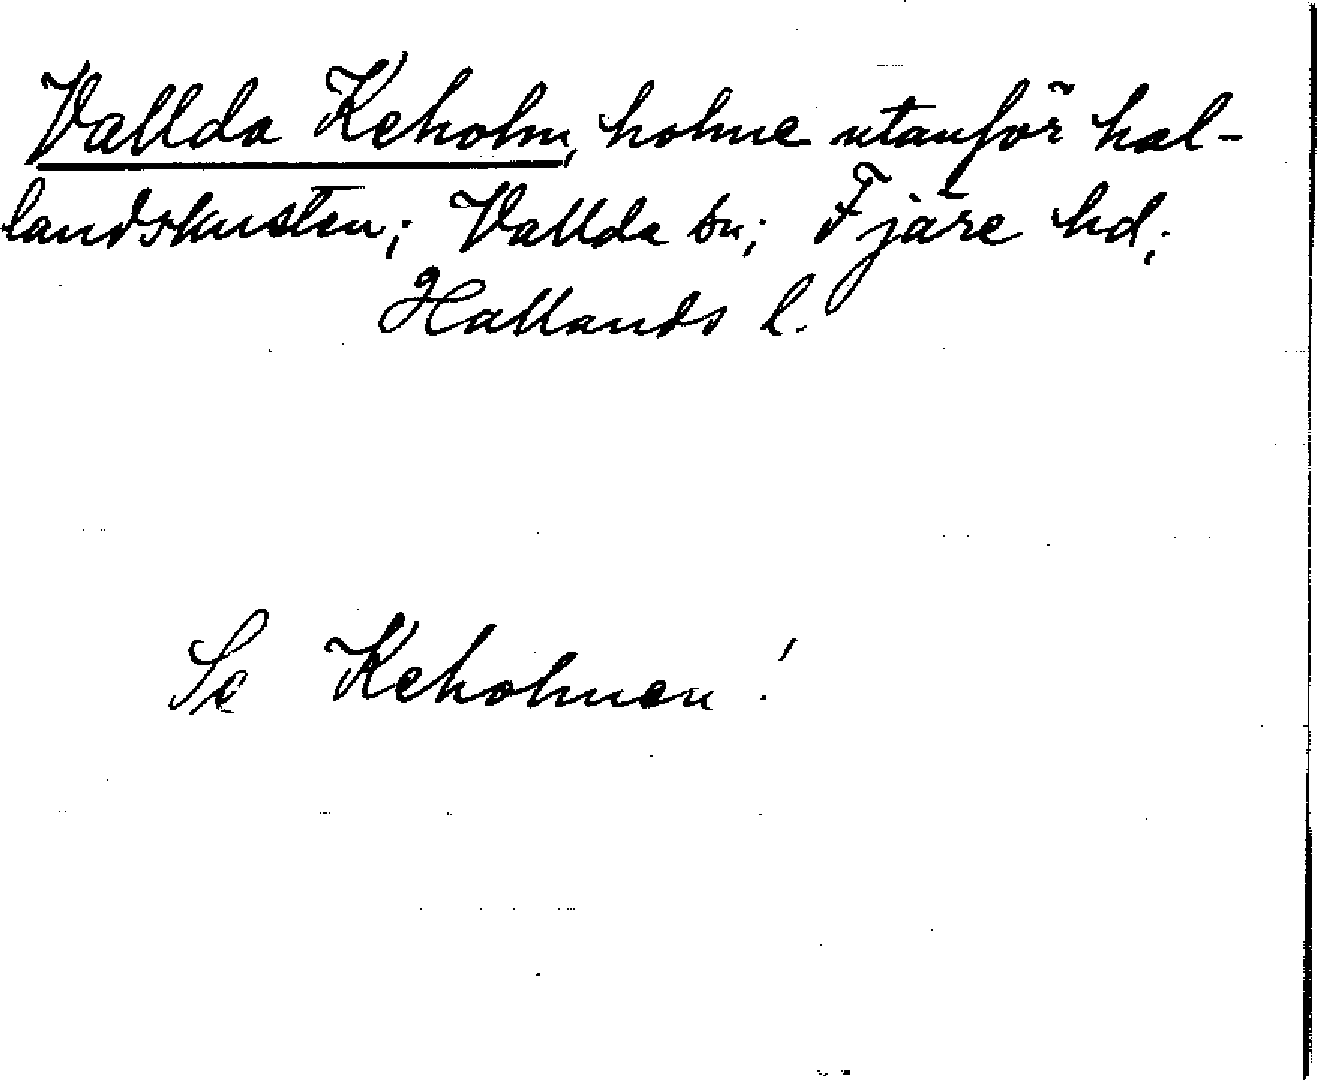 Vallda Keholm, holme utanför hal-
landskusten; Vallda sn; Fjäre hd;
Hallands l.
Se Keholmen!